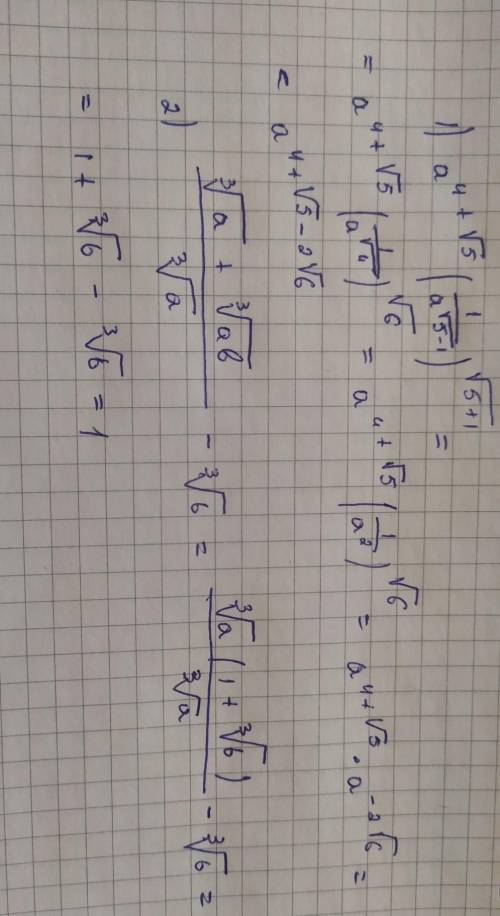 1) a^{4+√5} (1/a^{√5-1})^{√5+1} =
= a^{4+√5} (1/a^{√4})^{√6} = a^{4+√5} (1/a^2)^{√6} = a^{4+√5} · a^{-2√6} =
= a^{4+√5-2√6}
2) (∛a + ∛ab)/∛a - ∛b = ∛a (1 + ∛b)/∛a - ∛b =
= 1 + ∛b - ∛b = 1